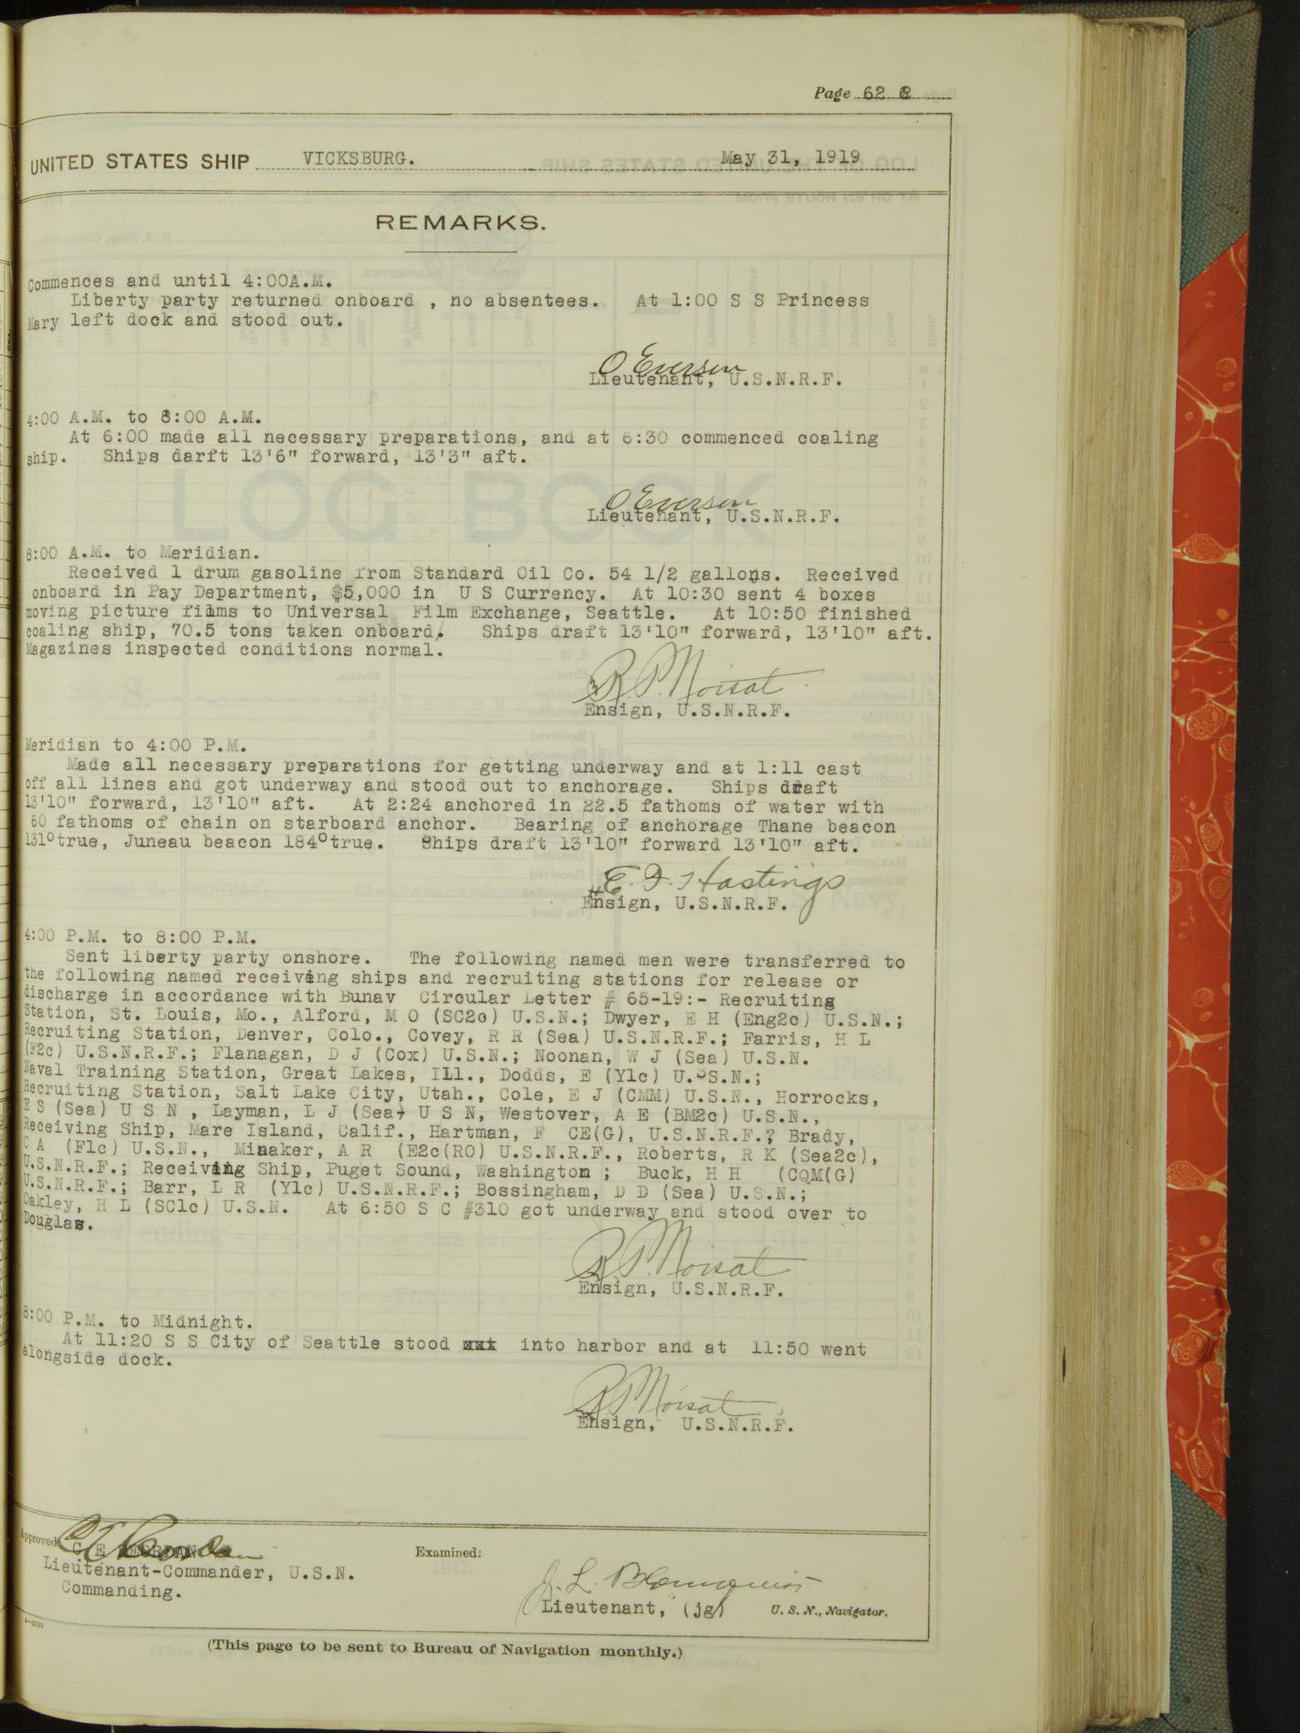 Page 62
UNITED STATES SHIP VICKSBURG. May 31, 1919
REMARKS.
Commences and until 4:00A.M.
Liberty party returned onboard , no absentees. At 1:00 S S Princess
Mary left dock and stood out.
O Everson
Lieutenant, U.S.N.R.F.
4:00 A.M. to 8:00 A.M.
At 6:00 made all necessary preparations, and at 6:30 commenced coaling
ship. Ships darft 13'6" forward, 13'3" aft.
O Everson
Lieutenant, U.S.N.R.F.
8:00 A.M. to Meridian.
Received 1 drum gasoline from Standard Oil Co. 54 1/2 gallons. Received
onboard in Pay Department, $5,000 in U S Currency. At 10:30 sent 4 boxes
moving picture films to Universal Film Exchange, Seattle. At 10:50 finished
coaling ship, 70.5 tons taken onboard. Ships draft 13'10" forward, 13'10" aft.
Magazines inspected conditions normal.
R P Moisat
Ensign, U.S.N.R.F.
Meridian to 4:00 P.M.
Made all necessary preparations for getting underway and at 1:11 cast
off all lines and got underway and stood out to anchorage. Ships draft
13'10" forward, 13'10" aft. At 2:24 anchored in 22.5 fathoms of water with
60 fathoms of chain on starboard anchor. Bearing of anchorage Thane beacon
131°true, Juneau beacon 184°true. Ships draft 13'10" forward 13'10" aft.
E. F. Hastings
Ensign, U.S.N.R.F.
4:00 P.M. to 8:00 P.M.
Sent liberty party onshore. The following named men were transferred to
the following named receiving ships and recruiting stations for release or
discharge in accordance with Bunav Circular Letter # 65-19:- Recruiting
Station, St. Louis, Mo., Alford, M O (SC2c) U.S.N.; Dwyer, E H (Eng2c) U.S.N.;
Recruiting Station, Denver, Colo., Covey, R R (Sea) U.S.N.R.F.; Farris, H L
(F2c) U.S.N.R.F.; Flanagan, D J (Cox) U.S.N.; Noonan, W J (Sea) U.S.N.
Naval Training Station, Great Lakes, Ill., Dodds, E (Y1c) U.S.N.;
Recruiting Station, Salt Lake City, Utah., Cole, E J (CMM) U.S.N., Horrocks,
E S (Sea) U S N , Layman, L J (Sea) U S N, Westover, A E (BM2c) U.S.N.,
Receiving Ship, Mare Island, Calif., Hartman, F CE(G), U.S.N.R.F.; Brady,
C A (F1c) U.S.N., Minaker, A R (E2c(RO) U.S.N.R.F., Roberts, R K (Sea2c),
U.S.N.R.F.; Receiving Ship, Puget Sound, Washington ; Buck, H H (CQM(G)
U.S.N.R.F.; Barr, L R (Y1c) U.S.N.R.F.; Bossingham, D D (Sea) U.S.N.;
Oakley, H L (SC1c) U.S.N. At 6:50 S C #310 got underway and stood over to
Douglas.
R P Moisat
Ensign, U.S.N.R.F.
8:00 P.M. to Midnight.
At 11:20 S S City of Seattle stood xxt into harbor and at 11:50 went
alongside dock.
R P Moisat
Ensign, U.S.N.R.F.
Approved:
C E
Lieutenant-Commander, U.S.N.
Commanding.
Examined:
J. L.
Lieutenant, (jg) U. S. N., Navigator.
(This page to be sent to Bureau of Navigation monthly.)